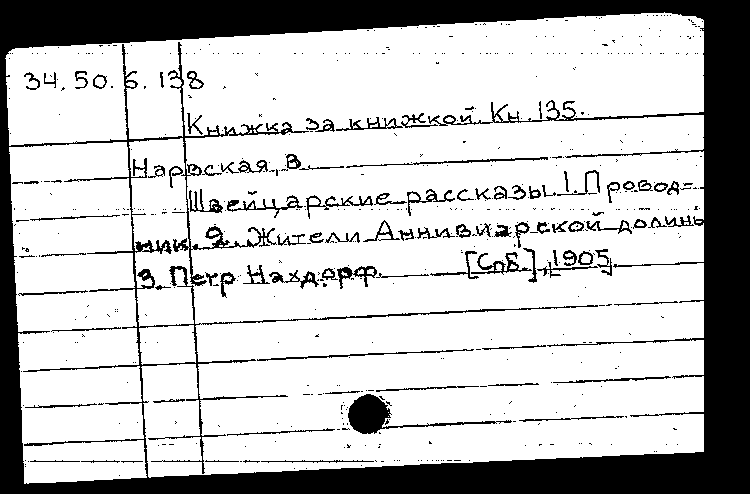 34.50.6.138
Книжка за книжкой. Кн. 135.
Нарвская, В.
Швейцарские рассказы. 1. Провод=
ник. 2. ЖителиАннивиарской долины
3. Петр Нахдорф. [СпБ.], 1905.